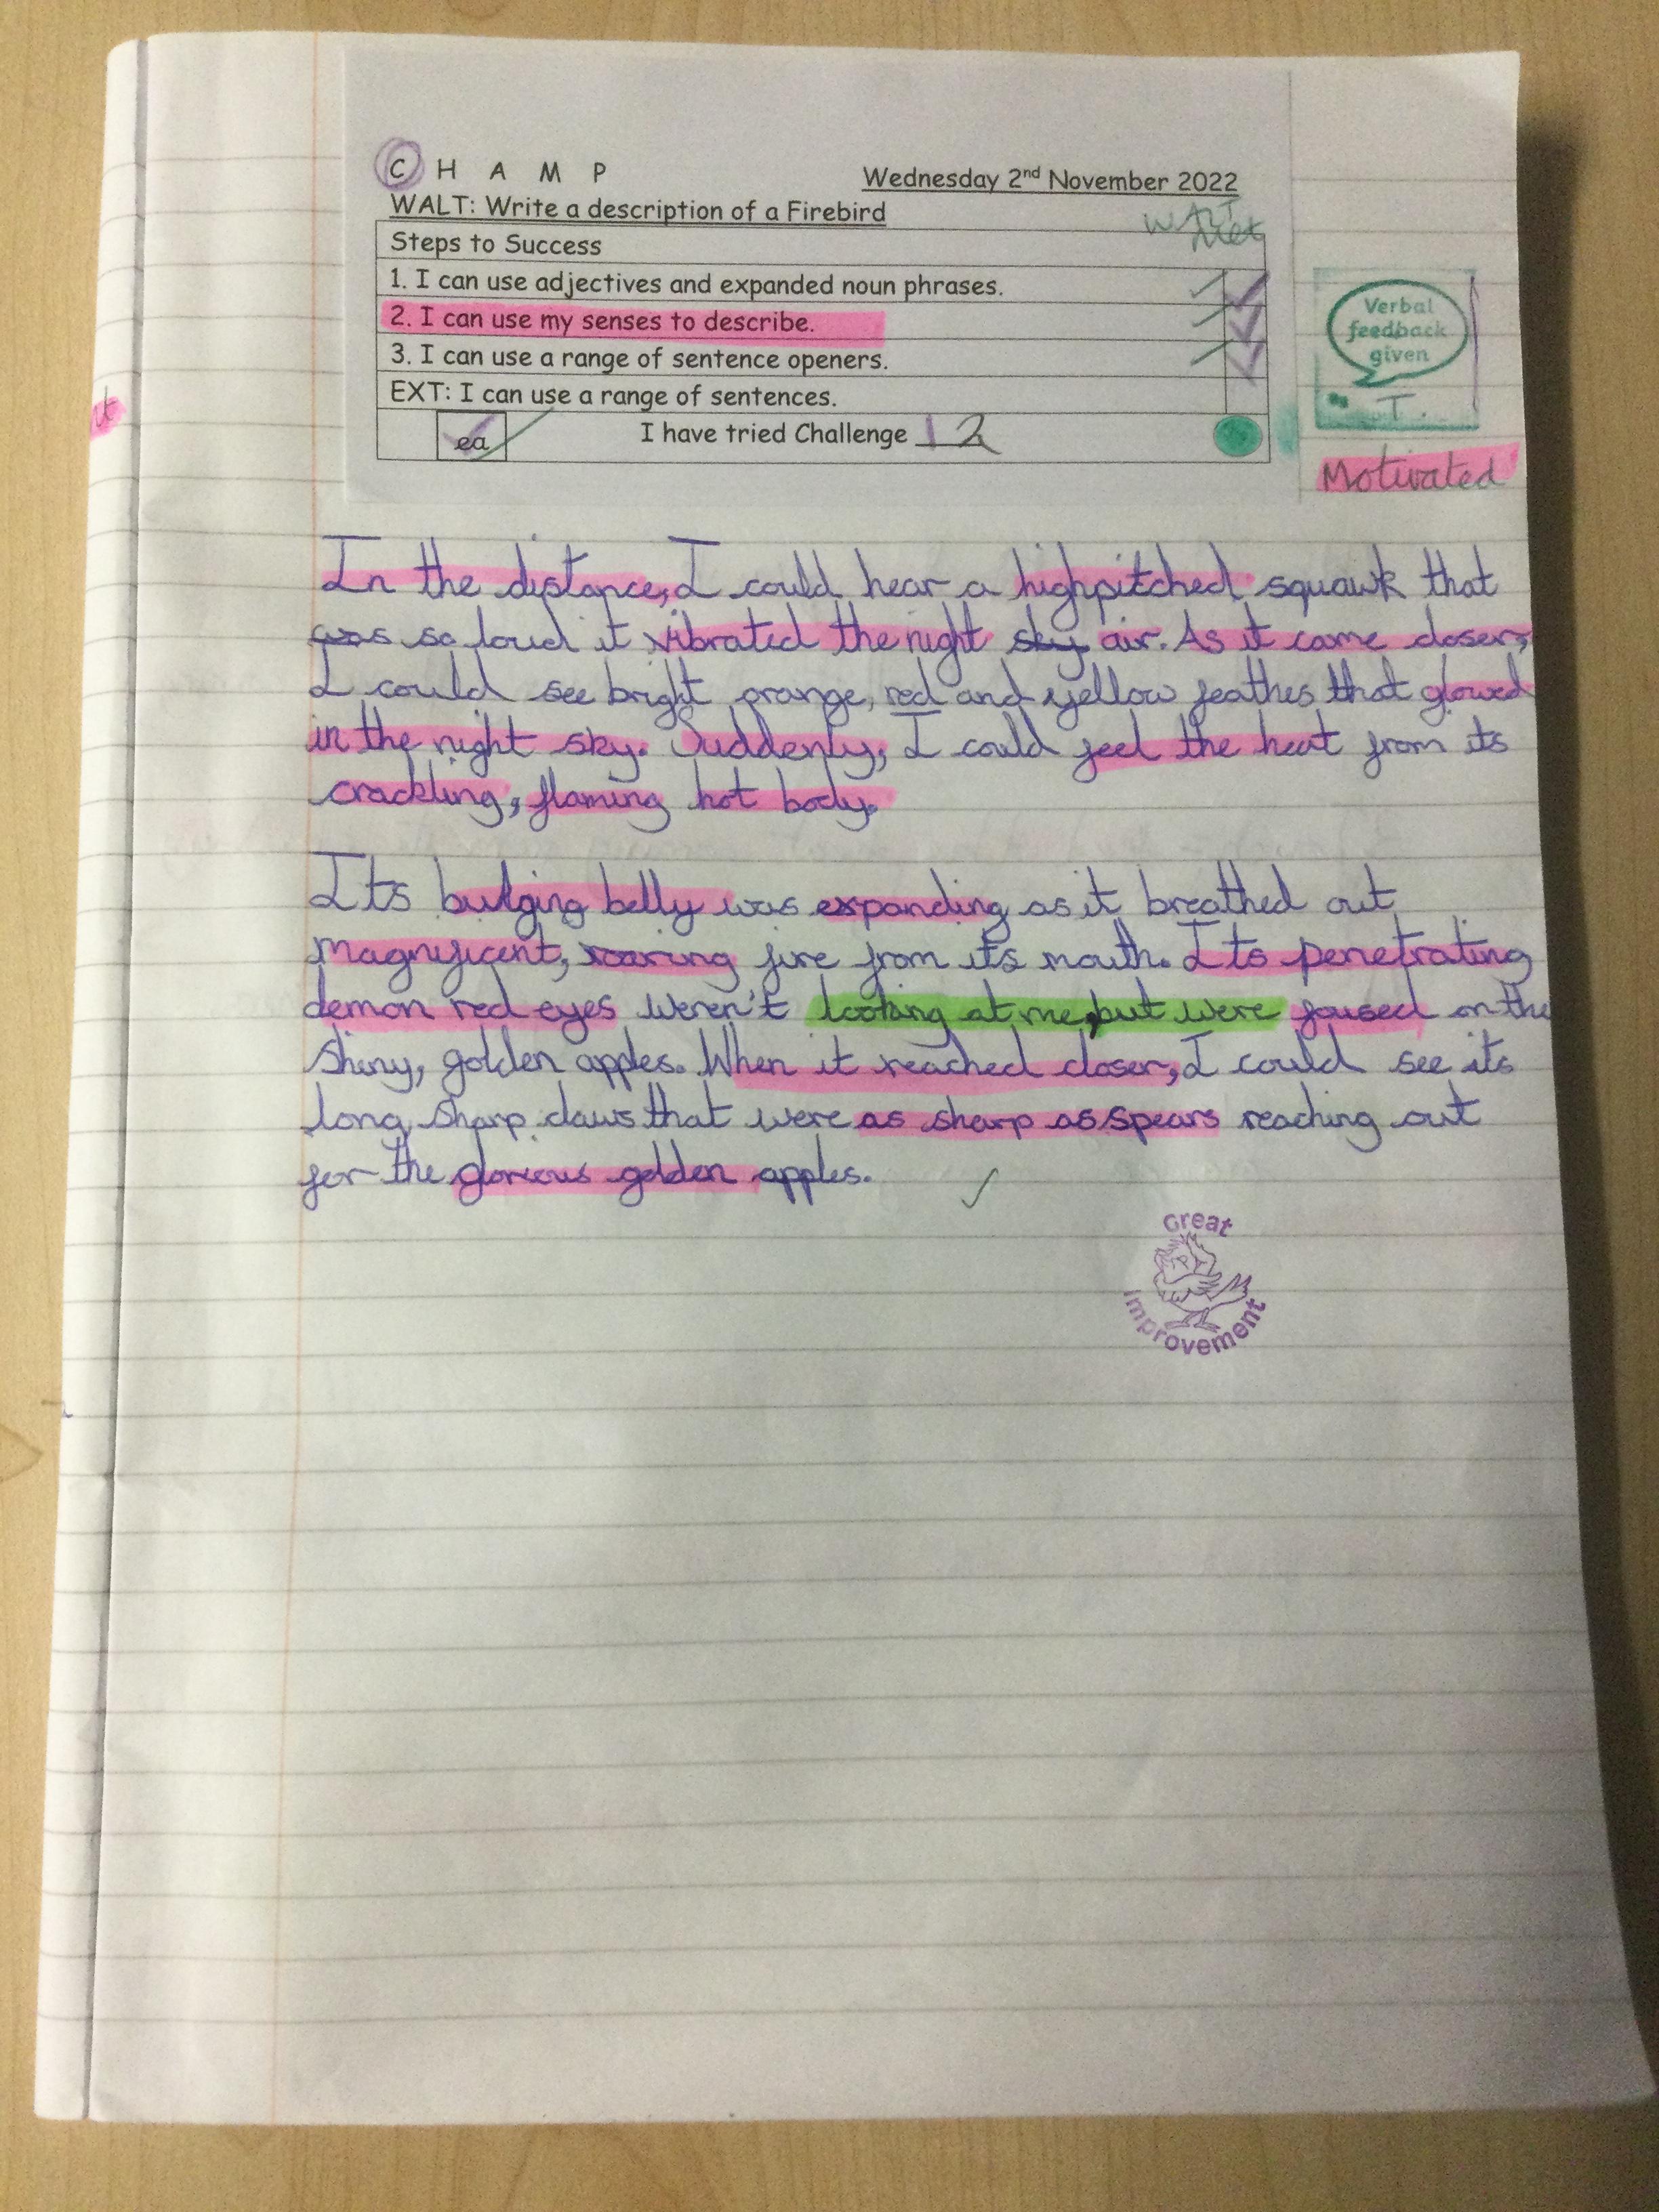 C H A M P
Wednesday 2nd November 2022
WALT: Write a description of a Firebird
WALT
Met
Steps to Success
1. I can use adjectives and expanded noun phrases.
2. I can use my senses to describe.
3. I can use a range of sentence openers.
EXT: I can use a range of sentences.
ea I have tried Challenge 1 2
Verbal
feedback
given
T.
Motivated
In the distance, I could hear a highpitched squawk that
was so loud it vibrated the night sky air. As it came closer,
I could see bright orange, red and yellow feathes that glowed
in the night sky. Suddenly, I could feel the heat from its
crackling, flaming hot body.
Its bulging belly was expanding as it breathed out
magnificent, roaring fire from its mouth. Its penetrating
demon red eyes weren't looking at me, but were foused on the
shiny, golden apples. When it reached closer, I could see its
long, sharp claws that were as sharp as spears reaching out
for the glorious golden apples.
Great
Improvement